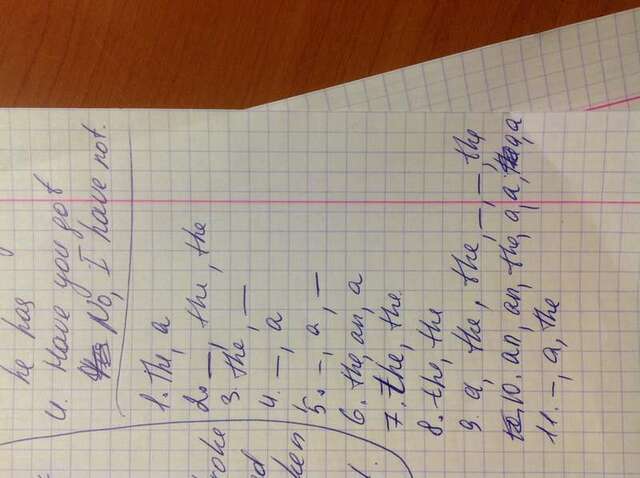 he has
4. Have you got
No, I have not.
1. The, a
2. —, the, the
3. the, —
4. —, a
5. —, a, —
6. the, an, a
7. the, the
8. the, the
9 a, the, the, —, —, the
10. an, an, the, a, a, a, a
11. –, a, the
oke
ed
ken